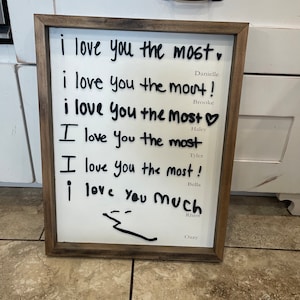 i love you the most.
Danielle
i love you the moot!
Brooke
i love you the Most♡
Haley
I love you the most
Tyler
I love you the most!
Bella
i love you much